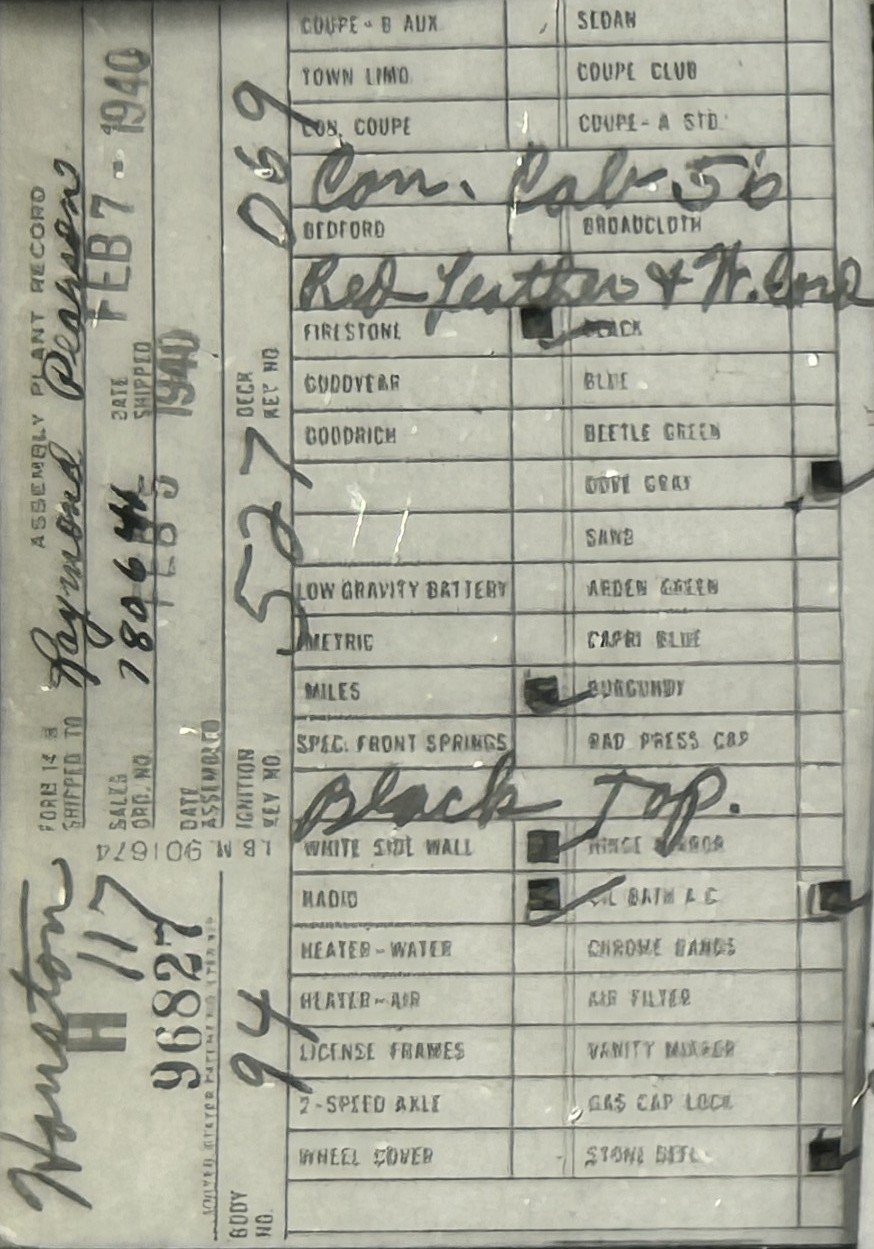 FORM 14 B ASSEMBLY PLANT RECORD
SHIPPED TO Raymond Pearson
SALES ORD. NO. DATE SHIPPED FEB 7 - 1940
DATE ASSEMBLED FEB 5 1940
IGNITION KEY NO. 527 DECK KEY NO. 059
Houston
H 117
96827
BODY NO. 94
I.B.M. 901674
COUPE - B AUX SEDAN
TOWN LIMO COUPE CLUB
CON. COUPE COUPE - A STD.
Con. Cab. 56
BEDFORD BROADCLOTH
Red Leather & W. Cord
FIRESTONE BLACK
GOODYEAR BLUE
GOODRICH BEETLE GREEN
DOVE GRAY
SAND
LOW GRAVITY BATTERY ARDEN GREEN
METRIC CAPRI BLUE
MILES BURGUNDY
SPEC. FRONT SPRINGS RAD PRESS CAP
Black Top.
WHITE SIDE WALL HINGE MIRROR
RADIO OIL BATH A C
HEATER-WATER CHROME BANDS
HEATER-AIR AIR FILTER
LICENSE FRAMES VANITY MIRROR
2-SPEED AXLE GAS CAP LOCK
WHEEL COVER STONE DEFL.